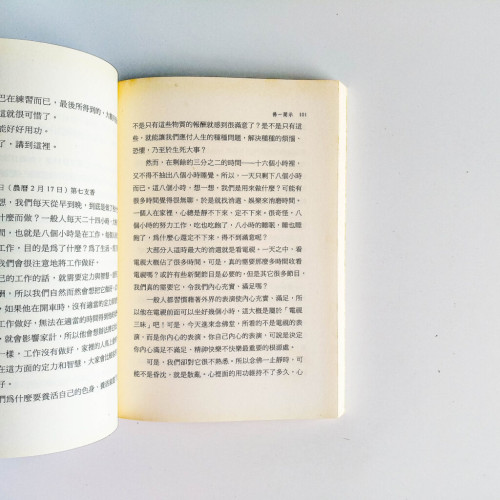 巴在練習而已，最後所得到的，大概
這就很可惜了。
能好好用功。
，講到這裡。
日（農曆２月１７日）第七支香
想，我們每天從早到晚，到底是做了
什麼而做？一般人每天二十四小時，
，也就是八個小時是在工作。每個
工作。目的是為了什麼？為了生活
我們會很注意地將工作做好。
己的工作的話，就需要定力與智慧
，所以我們自然而然會想把它做好
，如果他在開車時，沒有適當的定力
工作做好，無法在適當的時間得到
，就會影響家計，所以他會想辦法
一樣，工作沒有做好，家裡的人馬上會
在這方面的定力和智慧，大家會比較
們為什麼要養活自己的色身，養活
香一開示 101
不是只有這些物質的報酬就感到很滿意了？是不是只有這
些，就能讓我們應付人生的種種問題，解決種種的煩惱、
恐懼，乃至於生死大事？
然而，在剩餘的三分之二的時間——十六個小時裡，
又不得不抽出八個小時睡覺。所以，一天只剩下八個小時
而已。這八個小時，想一想，我們是用來做什麼？可能有
很多時間覺得很無聊。於是就找消遣、娛樂來消磨時間。
一個人在家裡，心總是靜不下來、定不下來，很奇怪。八
個小時的努力工作、吃也吃飽，八小時的睡眠，睡也睡
飽了，為什麼心還定不下來、得不到滿意呢？
大部分人這時最大的消遣就是看電視。一天之中，看
電視大概佔了很多時間。可是，真的需要那麼多時間就看
電視嗎？或許有些新聞節目是必要的。但是其它很多節目，
我們真的需要它，令我們內心充實、滿足嗎？
一般人都習慣藉著外界的表演使內心充實、滿足，所
以他在電視前面可以坐好幾個小時，這大概是屬於「電視
三昧」吧！可是，今天進來念佛堂，所看的不是電視的表
演，而是你內心的表演，你自己內心的表演，可說是決定
你內心滿足不滿足，精神快樂不快樂最重要的根源處。
可是，我們卻對它很不熟悉。所以念佛一止靜時，可
能不是昏沈，就是散亂。心裡面的用功維持不了多久，心